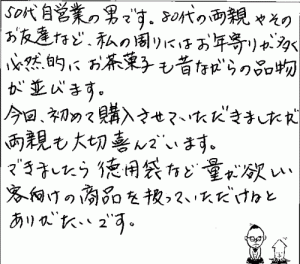 50代自営業の男です。80代の両親やその
お友達など、私の周りにはお年寄りが多く
必然的にお茶菓子も昔ながらの品物
が並びます。
今回、初めて購入させていただきましたが
両親も大切喜んでいます。
できましたら徳用袋など量が欲しい
客向けの商品を扱っていただけると
ありがたいです。